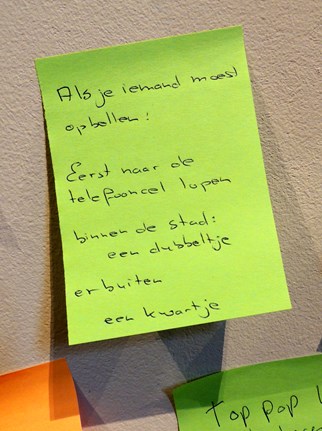 Als je iemand moest
opbellen:
Eerst naar de
telefooncel lopen
binnen de stad:
een dubbeltje
erbuiten
een kwartje
Toppop